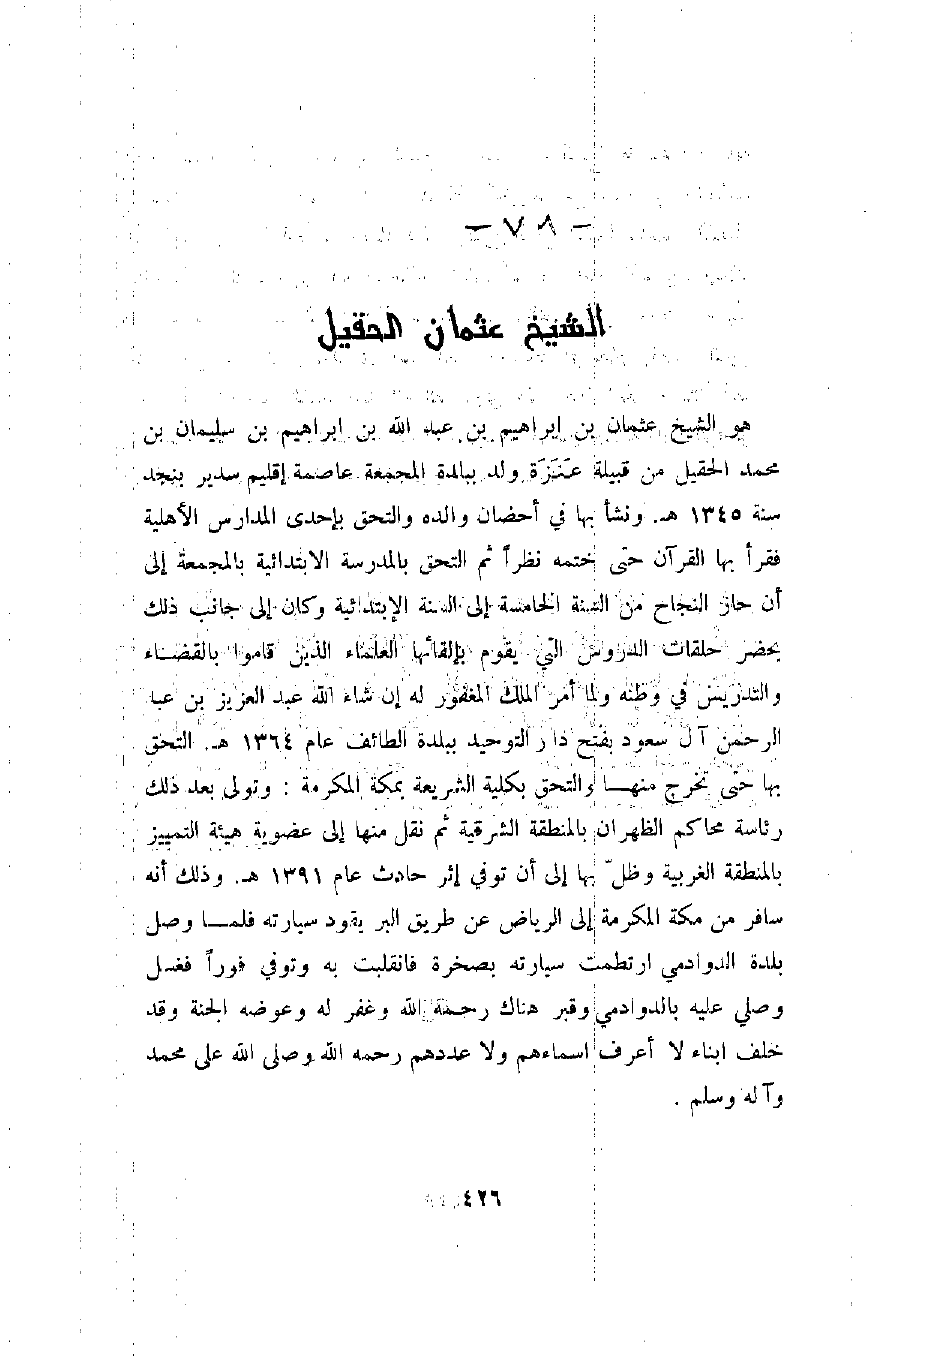 - ٧٨ -
الشيخ عثمان الحقيل
هو الشيخ عثمان بن ابراهيم بن عبد الله بن ابراهيم بن سليمان بن
محمد الحقيل من قبيلة عَنَزَة ولد ببلدة المجمعة عاصمة إقليم سدير بنجد
سنة ١٣٤٥ هـ. ونشأ بها في أحضان والده والتحق بإحدى المدارس الأهلية
فقرأ بها القرآن حتى ختمه نظراً ثم التحق بالمدرسة الابتدائية بالمجمعة إلى
أن حاز النجاح من السنة الخامسة إلى السنة الإبتدائية وكان إلى جانب ذلك
يحضر حلقات الدروس التي يقوم بإلقائها العلماء الذين قاموا بالقضاء
والتدريس في وطنه ولما أمر الملك المغفور له إن شاء الله عبد العزيز بن عبد
الرحمن آل سعود بفتح دار التوحيد ببلدة الطائف عام ١٣٦٤ هـ. التحق
بها حتى تخرج منهـا والتحق بكلية الشريعة بمكة المكرمة : وتولى بعد ذلك
رئاسة محاكم الظهران بالمنطقة الشرقية ثم نقل منها إلى عضوية هيئة التمييز
بالمنطقة الغربية وظلّ بها إلى أن توفي إثر حادث عام ١٣٩١ هـ. وذلك أنه
سافر من مكة المكرمة إلى الرياض عن طريق البر يقود سيارته فلمـا وصل
بلدة الدوادمي ارتطمت سيارته بصخرة فانقلبت به وتوفي فوراً فغسل
وصلي عليه بالدوادمي وقبر هناك رحمة الله وغفر له وعوضه الجنة وقد
خلف ابناء لا أعرف اسماءهم ولا عددهم رحمه الله وصلى الله على محمد
وآله وسلم .
٤٢٦